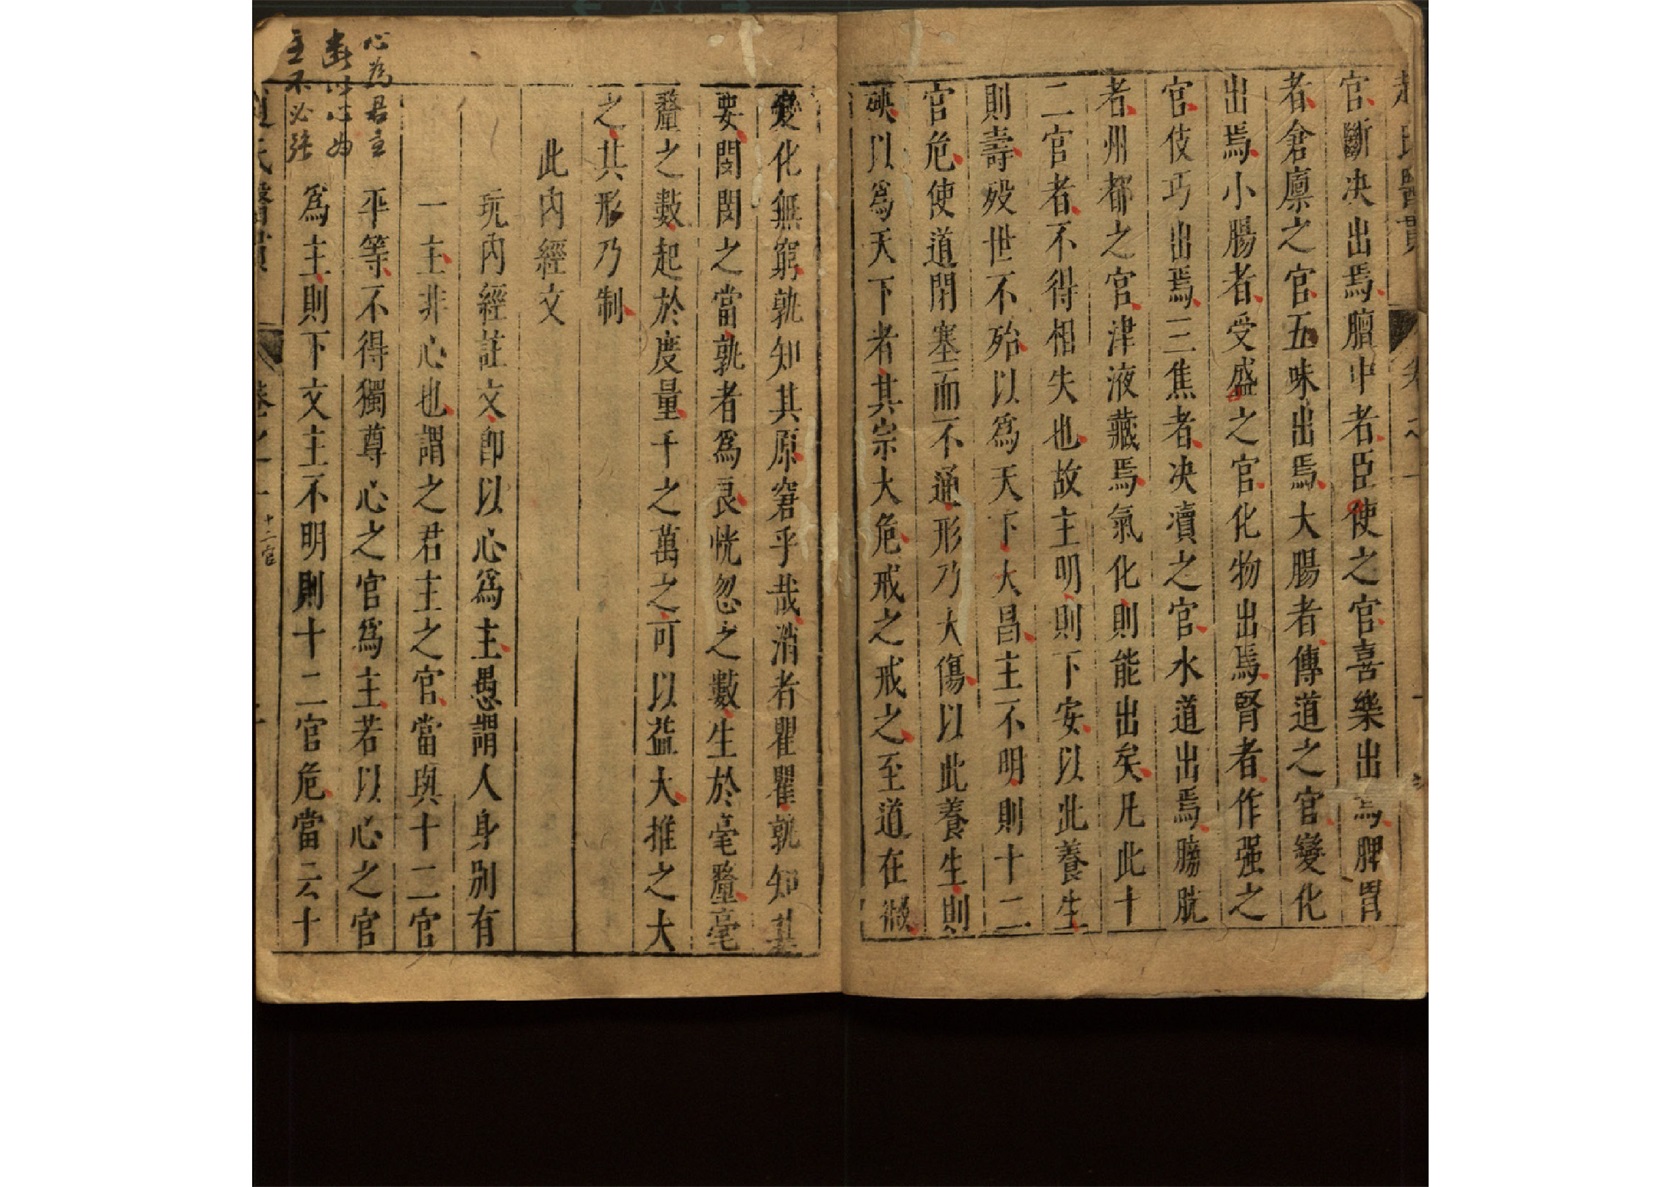 趙氏醫貫
卷之一
官斷决出焉膻中者臣使之官喜樂出焉脾胃
者倉廪之官五味出焉大腸者傳道之官變化
出焉小腸者受盛之官化物出焉腎者作强之
官伎巧出焉三焦者决瀆之官水道出焉膀胱
者州都之官津液藏焉氣化則能出矣凡此十
二官者不得相失也故主明則下安以此養生
則壽殁世不殆以爲天下大昌主不明則十二
官危使道閉塞而不通形乃大傷以此養生則
殃以爲天下者其宗大危戒之戒之至道在微
變化無窮孰知其原窘乎哉消者瞿瞿孰知其
要閔閔之當孰者爲良恍惚之數生於毫釐毫
釐之數起於度量千之萬之可以益大推之大
之其形乃制
此内經文
玩内經註文即以心爲主愚謂人身别有
一主非心也謂之君主之官當與十二官
平等不得獨尊心之官爲主若以心之官
爲主則下文主不明則十二官危當云十
趙氏醫貫
卷之一
十二官
心爲君主
以心爲
主不必